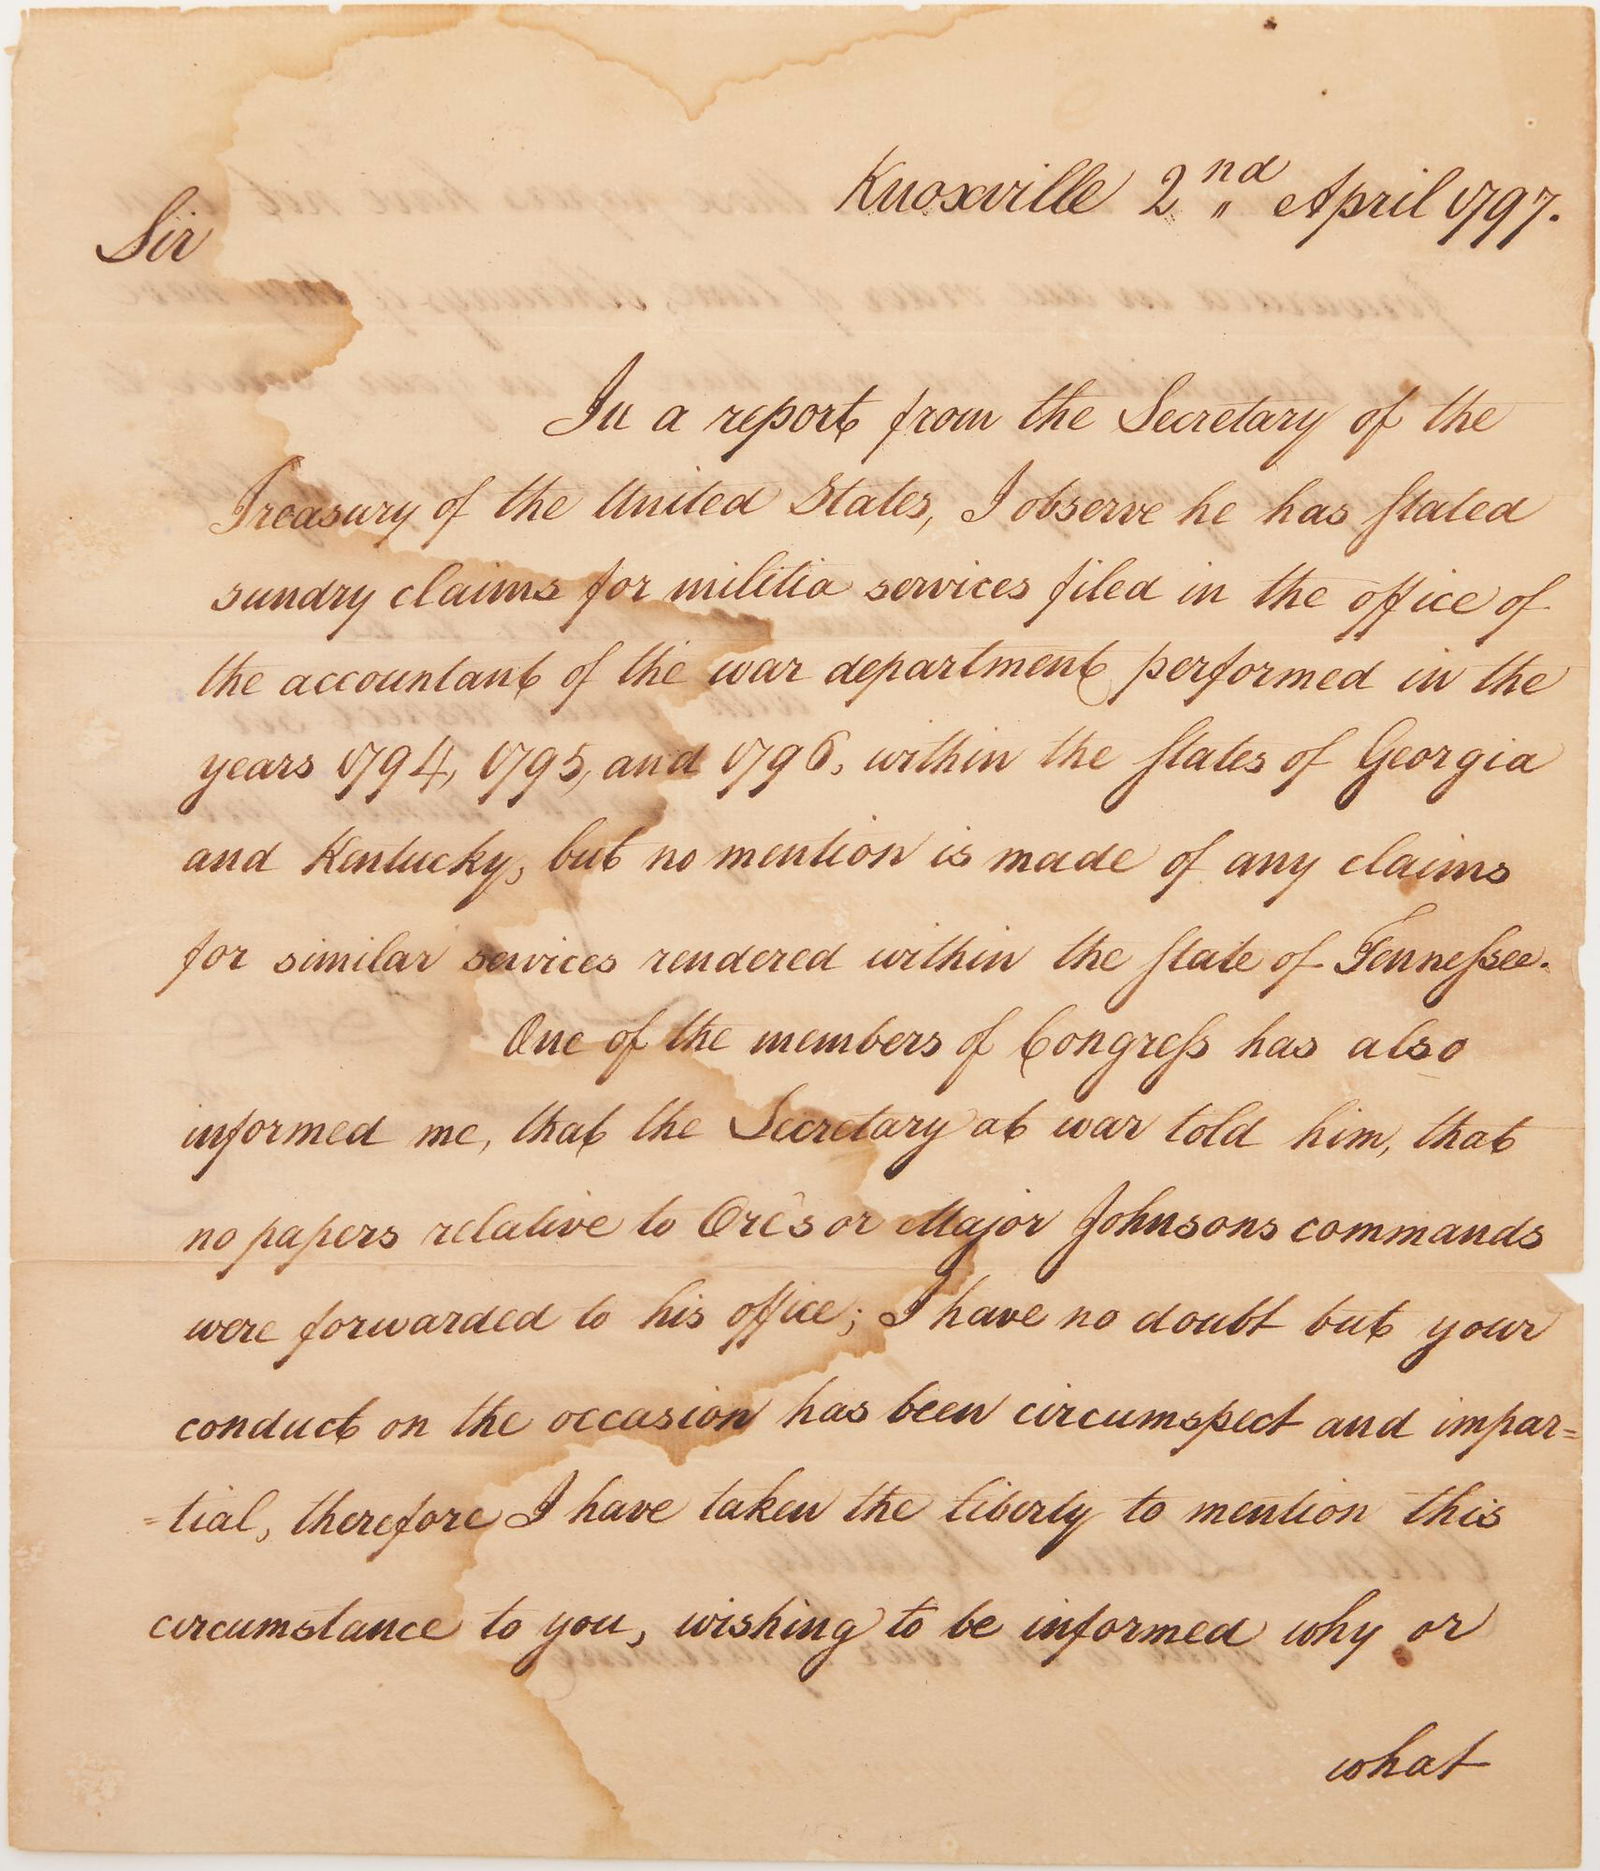 Knoxville 2nd April 1797.
Sir
In a report from the Secretary of the
Treasury of the United States, I observe he has stated
sundry claims for militia services filed in the office of
the accountant of the war department performed in the
years 1794, 1795, and 1796, within the states of Georgia
and Kentucky, but no mention is made of any claims
for similar services rendered within the state of Tennessee.
One of the members of Congress has also
informed me, that the Secretary at war told him, that
no papers relative to Ore's or Major Johnsons commands
were forwarded to his office; I have no doubt but your
conduct on the occasion has been circumspect and impar=
=tial, therefore I have taken the liberty to mention this
circumstance to you, wishing to be informed why or
what